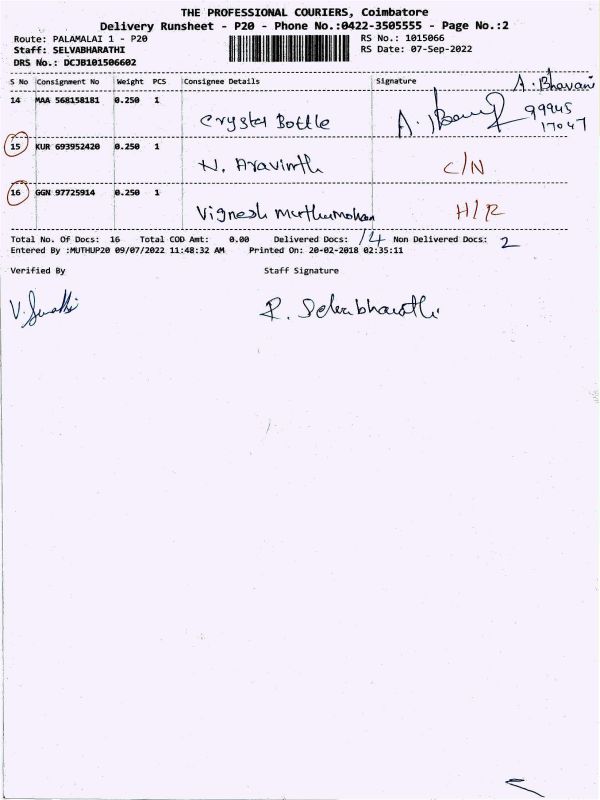 THE PROFESSIONAL COURIERS, Coimbatore
Delivery Runsheet - P20 - Phone No.:0422-3505555 - Page No.:2
Route: PALAMALAI 1 - P20 RS No.: 1015066
Staff: SELVABHARATHI RS Date: 07-Sep-2022
DRS No.: DCJB101506602
S No Consignment No Weight PCS Consignee Details Signature A. Bhavani
14 MAA 568158181 0.250 1 Crystal Bottle 99945
17047
15 KUR 693952420 0.250 1 N. Aravinth C/N
16 GGN 97725914 0.250 1 Vignesh Muthumohan H/R
Total No. Of Docs: 16 Total COD Amt: 0.00 Delivered Docs: 14 Non Delivered Docs: 2
Entered By :MUTHUP20 09/07/2022 11:48:32 AM Printed On: 20-02-2018 02:35:11
Verified By Staff Signature
R. Selvabharathi